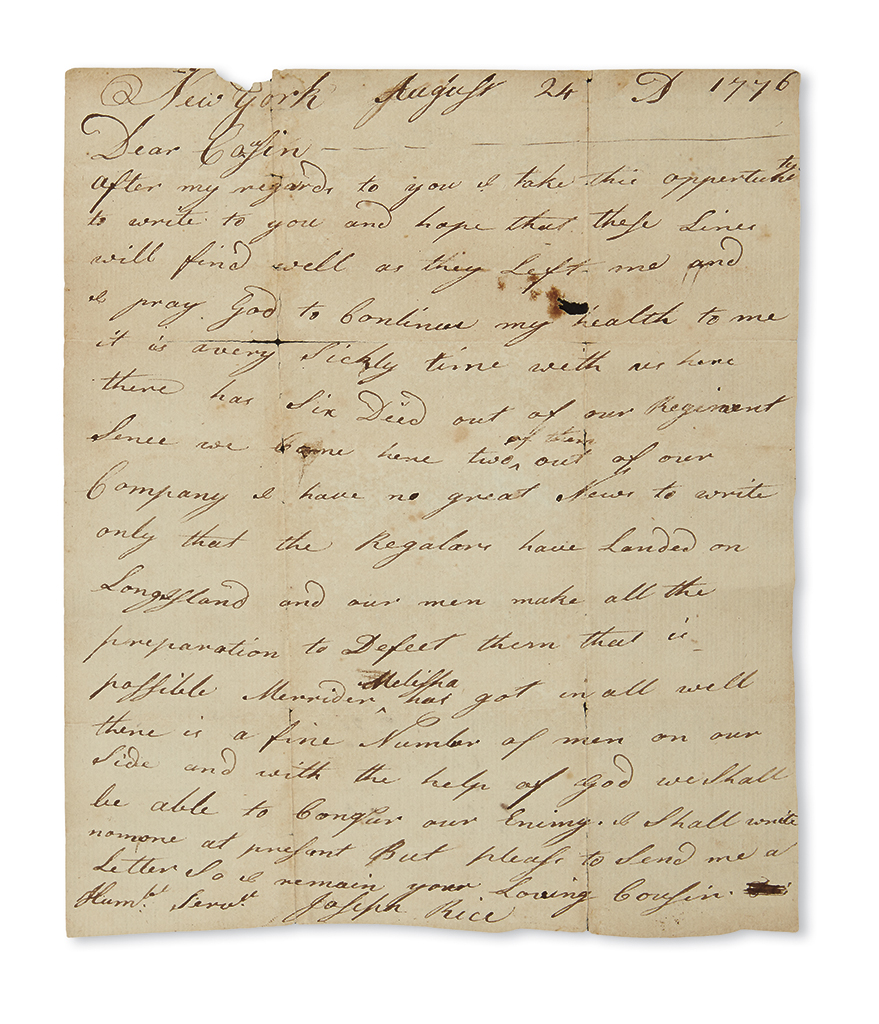 New York August 24 D 1776
Dear Cosin
after my regards to you I take this oppertunity
to write to you and hope that these Lines
will find well as they Left me and
I pray God to Continue my health to me
it is avery Sickly time with us here
there has Six Died out of our Regiment
Sence we Came here two of them out of our
Company I have no great News to write
only that the Regalars have Landed on
Long Island and our men make all the
preparation to Defeet them that is
possible Merriden Melisha has got in all well
there is a fine Number of men on our
Side and with the help of God we Shall
be able to Conqur our Enemy. I Shall write
nomore at present But pleass to Send me a
Letter So I remain your Loving Cousin
Humbl. Servt. Joseph Rice